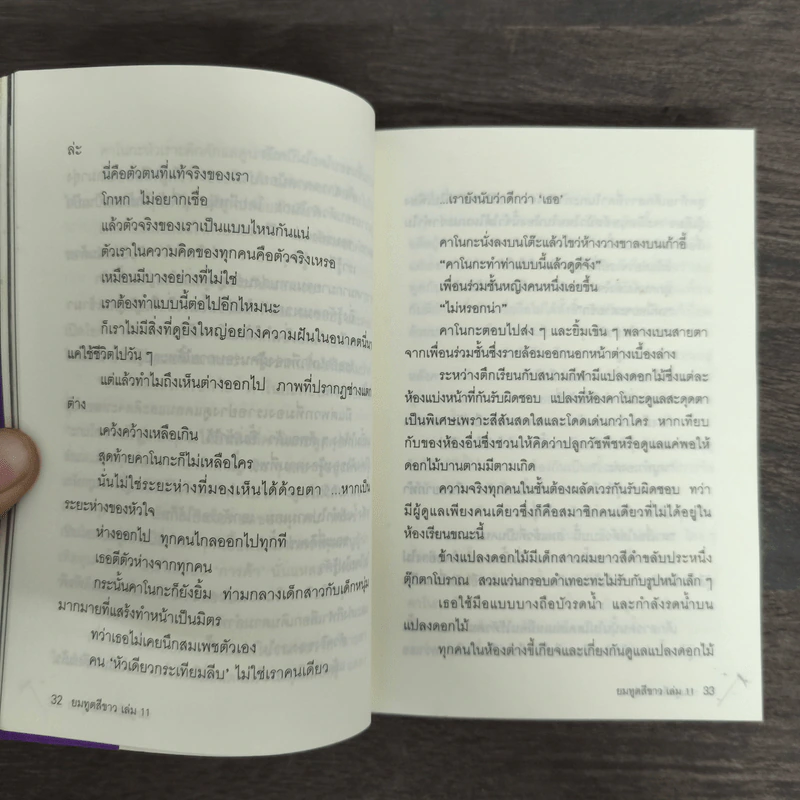 ล่ะ
นี่คือตัวตนที่แท้จริงของเรา
โกหก ไม่อยากเชื่อ
แล้วตัวจริงของเราเป็นแบบไหนกันแน่
ตัวเราในความคิดของทุกคนคือตัวจริงเหรอ
เหมือนมีบางอย่างที่ไม่ใช่
เราต้องทำแบบนี้ต่อไปอีกไหมนะ
ก็เราไม่มีสิ่งที่ดูยิ่งใหญ่อย่างความฝันในอนาคตนี่นา
แค่ใช้ชีวิตไปวัน ๆ
แต่แล้วทำไมถึงเห็นต่างออกไป ภาพที่ปรากฏช่างแตก
ต่าง
เคว้งคว้างเหลือเกิน
สุดท้ายคาโนกะก็ไม่เหลือใคร
นั่นไม่ใช่ระยะห่างที่มองเห็นได้ด้วยตา ...หากเป็น
ระยะห่างของหัวใจ
ห่างออกไป ทุกคนไกลออกไปทุกที
เธอตีตัวห่างจากทุกคน
กระนั้นคาโนกะก็ยังยิ้ม ท่ามกลางเด็กสาวกับเด็กหนุ่ม
มากมายที่แสร้งทำหน้าเป็นมิตร
ทว่าเธอไม่เคยนึกสมเพชตัวเอง
คน ‘หัวเดียวกระเทียมลีบ’ ไม่ใช่เราคนเดียว
32 ยมทูตสีขาว เล่ม 11
...เรายังนับว่าดีกว่า ‘เธอ’
คาโนกะนั่งลงบนโต๊ะแล้วไขว่ห้างวางขาลงบนเก้าอี้
“คาโนกะทำท่าแบบนี้แล้วดูดีจัง”
เพื่อนร่วมชั้นหญิงคนหนึ่งเอ่ยขึ้น
“ไม่หรอกน่า”
คาโนกะตอบไปส่ง ๆ และยิ้มเขิน ๆ พลางเบนสายตา
จากเพื่อนร่วมชั้นซึ่งรายล้อมออกนอกหน้าต่างเบื้องล่าง
ระหว่างตึกเรียนกับสนามกีฬามีแปลงดอกไม้ซึ่งแต่ละ
ห้องแบ่งหน้าที่กันรับผิดชอบ แปลงที่ห้องคาโนกะดูแลสะดุดตา
เป็นพิเศษเพราะสีสันสดใสและโดดเด่นกว่าใคร หากเทียบ
กับของห้องอื่นซึ่งชวนให้คิดว่าปลูกวัชพืชหรือดูแลแค่พอให้
ดอกไม้บานตามมีตามเกิด
ความจริงทุกคนในชั้นต้องผลัดเวรกันรับผิดชอบ ทว่า
มีผู้ดูแลเพียงคนเดียวซึ่งก็คือสมาชิกคนเดียวที่ไม่ได้อยู่ใน
ห้องเรียนขณะนี้
ข้างแปลงดอกไม้มีเด็กสาวผมยาวสีดำขลับประหนึ่ง
ตุ๊กตาโบราณ สวมแว่นกรอบดำเทอะทะไม่รับกับรูปหน้าเล็ก ๆ
เธอใช้มือแบบบางถือบัวรดน้ำ และกำลังรดน้ำบน
แปลงดอกไม้
ทุกคนในห้องต่างขี้เกียจและเกี่ยงกันดูแลแปลงดอกไม้
ยมทูตสีขาว เล่ม 11 33